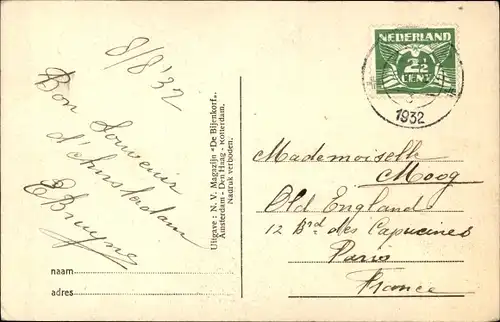 8/8'32
Bon Souvenir
d'Amsterdam
Uitgave: N. V. Magazijn „De Bijenkorf",
Amsterdam - Den Haag - Rotterdam.
Nadruk verboden.
naam
adres
NEDERLAND
2½
CENT
1932
Mademoiselle
Moog
Old England
12 Brd des Capucines
Paris
France